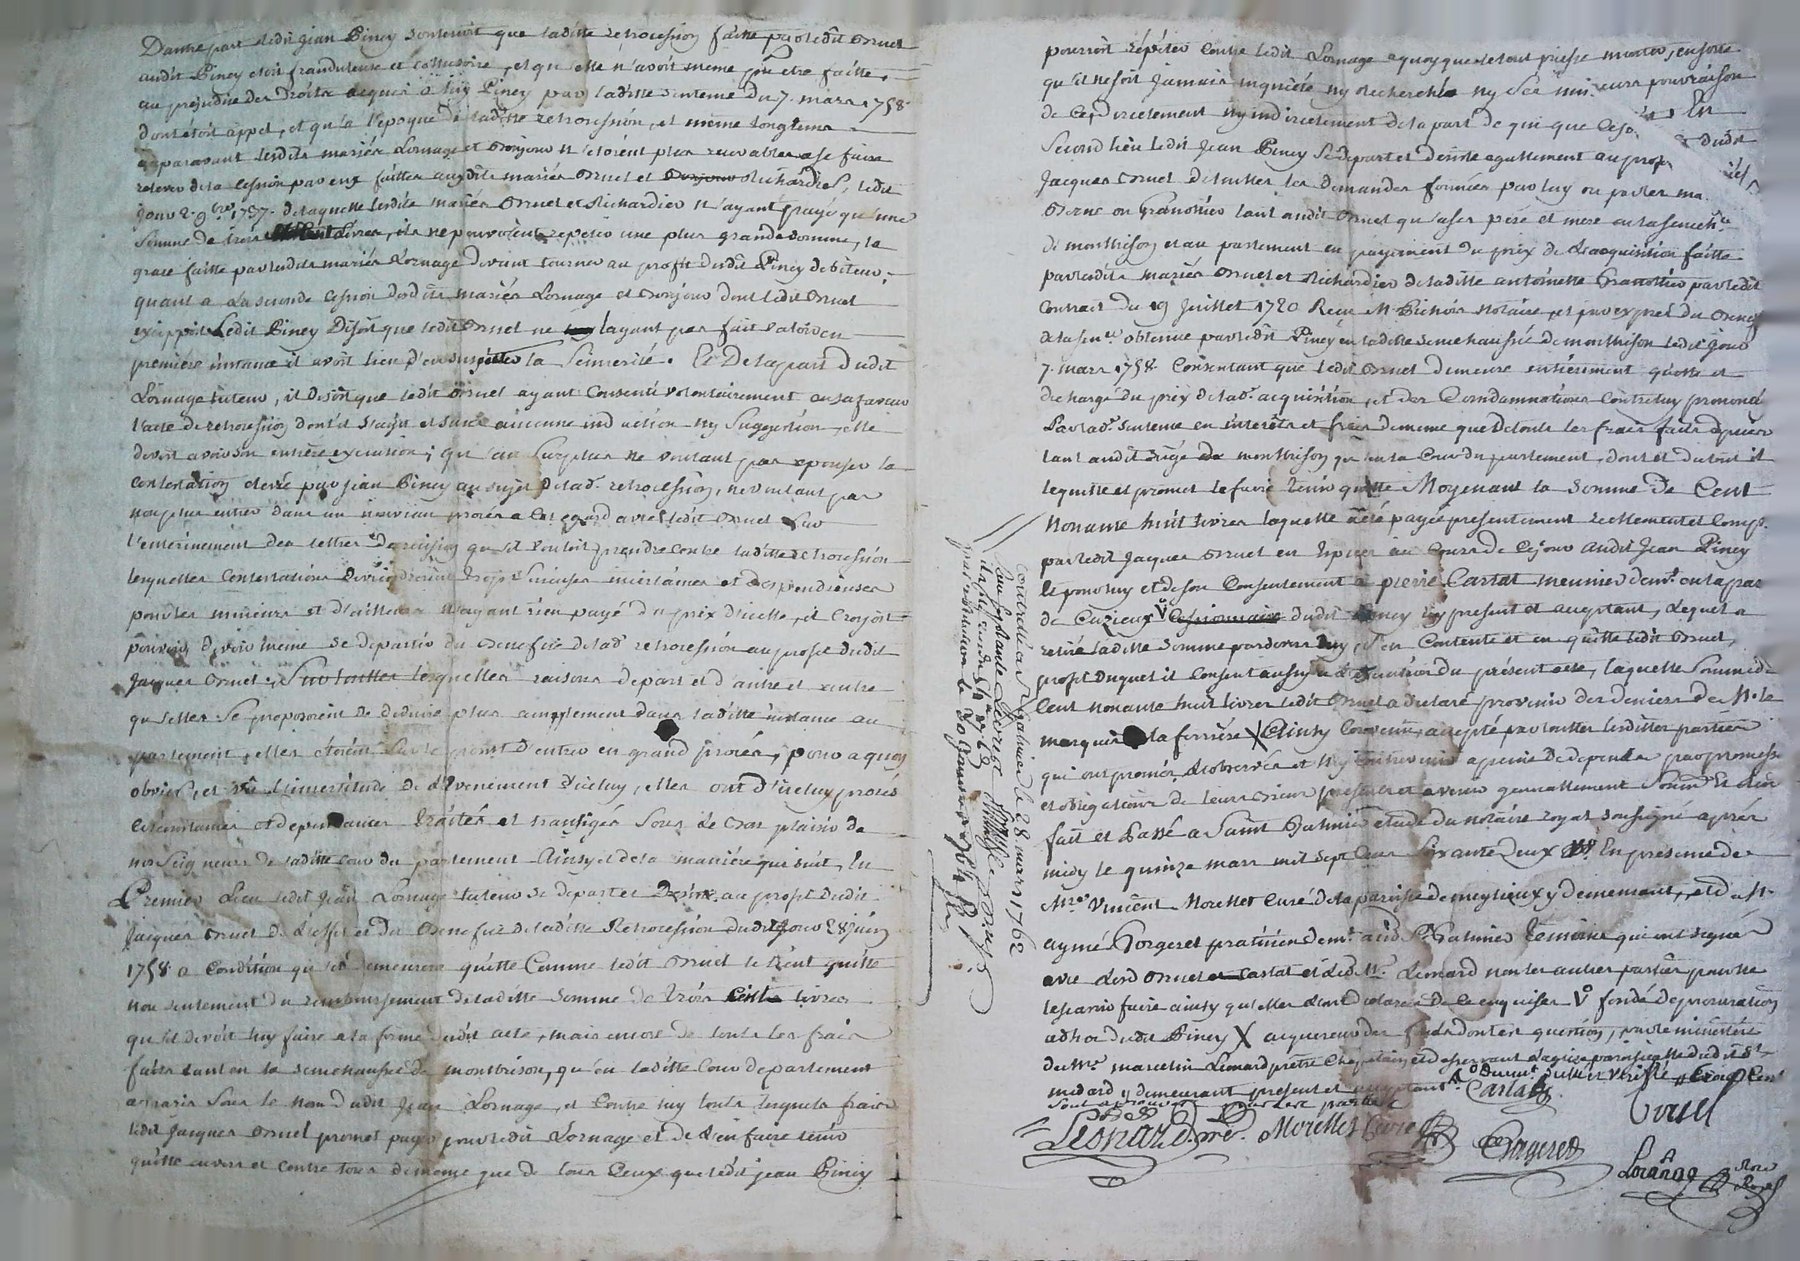 D'autre part ledit Jean Piney soutenoit que laditte retrocession faitte par ledit Oruel
audit Piney etoit frauduleuse et collusoire, et qu'elle n'avoit meme pu etre faitte
au prejudice des droits acquis a luy Piney par laditte sentence du 7. mars 1758.
dont etoit appel, et qu'a l'epoque de laditte retrocession, et meme longtems
auparavant lesdits mariés Lornage et Bonjour n'etoient plus recevables a se faire
relever de la cession par eux faitte auxdits mariés Oruel et Richardier, ledit
jour 2. 9bre 1757. de laquelle lesdits mariés Oruel et Richardier n'ayant payé qu'une
somme de trois livres, ils ne pouvoient repeter une plus grande somme, la
grace faitte par lesdits mariés Lornage devant tourner au profit dudit Piney debiteur.
quant a la seconde cession desdits mariés Lornage et Bonjour dont ledit Oruel
excippoit ledit Piney disoit que ledit Oruel ne l'ayant pas fait valoir en
premiere instance il avoit lieu d'en suspecter la sincerité. Et de la part dudit
Lornage tuteur, il disoit que ledit Oruel ayant consenti volontairement en sa faveur
l'acte de retrocession dont il s'agit et sans aucune induction ny suggestion, elle
devoit avoir son entiere execution; qu'au surplus ne voulant pas epouser la
contestation elevé par Jean Piney au sujet de lad. retrocession, ne voulant pas
non plus entrer dans un nouveau procés a cet egard avec ledit Oruel sur
l'enterinement des lettres de rescision qu'il vouloit prendre contre laditte retrocession
lesquelles contestations deviendroient trop serieuses incertaines et dispendieuses
pour les mineurs et d'ailleurs n'ayant rien payé du prix d'icelle, il croyoit
pouvoir devoir meme se departir du benefice de lad. retrocession au profit dudit
Jacques Oruel, lesquelles raisons de part et d'autre et autre
qu'elles se proposoient de deduire plus amplement dans laditte instance au
parlement, elles etoient sur le point d'entrer en grand procés, pour a quoy
obvier, et vû l'incertitude de l'evenement d'iceluy, elles ont d'iceluy procés
circonstances et dependances traités et transigés sous le bon plaisir de
nosseigneurs de laditte cour du parlement ainsy et de la maniere qui suit, En
Premier lieu ledit Jean Lornage tuteur se depart et desiste au profit dudit
Jacques Oruel de l'effet et du benefice de laditte Retrocession dudit jour 28 juin
1758 a condition qu'il demeurera quitte comme ledit Oruel le tient quitte
non seulement du remboursement de laditte somme de trois cents livres
qu'il devoit luy faire a la forme dudit acte, mais encore de touts les frais
faits tant en la senechaussée de montbrison, qu'en laditte Cour de parlement
a paris sous le nom dudit Jean Lornage, et contre luy touts lesquels frais
ledit Jacques Oruel promet payer pour ledit Lornage et de l'en faire tenir
quitte envers et contre tous de meme que de tous ceux que ledit jean Piney
pourroit repeter contre ledit Lornage a quoy que le tout puisse monter, ensorte
qu'il ne soit jamais inquieté ny recherché ny ses mineurs pour raison
de ce, directement ny indirectement de la part de qui que ce so
Second lieu ledit Jean Piney se depart et desiste egallement au prof dudit
Jacques Oruel de touttes les demandes formées par luy ou par les
tant audit Oruel qu'a ses pere et mere en la senech.
de montbrison et au parlement en payement du prix de l'acquisition faitte
par lesdits mariés Oruel et Richardier de laditte antoinette Granottier par ledit
contrat du 19 Juillet 1720 Reçu Me Bichon Notaire, et par exprés du
de la sence obtenue par ledit Piney en laditte senechaussée de montbrison ledit jour
7. mars 1758. Consentant que ledit Oruel demeure entierement quitte et
dechargé du prix de lad. acquisition, et des Condamnations contre luy prononcé
par lad. sentence en interêts et frais de meme que de touts les frais faits depuis
tant audit siége de montbrison qu'en la Cour du parlement, dont et du tout il
le quitte et promet le faire tenir quitte Moyenant la somme de Cent
Nonante huit livres laquelle a été payée presentement reellement et compt.
par ledit Jacques Oruel en Especes au cours de ce jour audit Jean Piney
le pour luy et de son Consentement a pierre Cartat meunier demt. en la par
de Cuzieux Vo Cessionnaire dudit Piney icy present et acceptant, Lequel a
retiré laditte somme par devers luy s'en contente et en quitte ledit Oruel,
profit duquel il consent aussy a l'execution du present acte, laquelle somme de
Cent nonante huit livres ledit Oruel a declaré provenir des deniers de M. le
marquis de la ferrière X Ainsy convenu, accepté par touttes lesdittes parties
qui ont promis d'observer et n'y contrevenir a peine de depends par promesse
et obligation de leurs biens presents et avenir generallement soumis et rien
fait et Passé a Saint Galmier etude du notaire royal soussigné aprés
midy le quinze mars mil sept cent soixante deux En presence de
Mre Vincent Morellet Curé de la paroisse de meylieux y demeurant, et de sr.
aymé Gorgeret praticien demt. aud. St Galmier temoins qui ont signé
avec lesd Oruel et Cartat et led Mr. Leonard non les autres parties pour ne
le scavoir faire ainsy qu'elles l'ont declarés de ce enquises Vo fondé de procuration
ad hoc dudit Piney X acquereur des fonds dont est question, par le ministere
de Mre. marcelin Léonard prêtre Chapelain et desservant l'eglise paroissialle dudit St
medard y demeurant present et acceptant
Cartat
Oruel
Leonard ptre.
Morellet Curé
Gorgeret
Lornage
Nore Royal
Controllé a St Galmier le 28 mars 1762